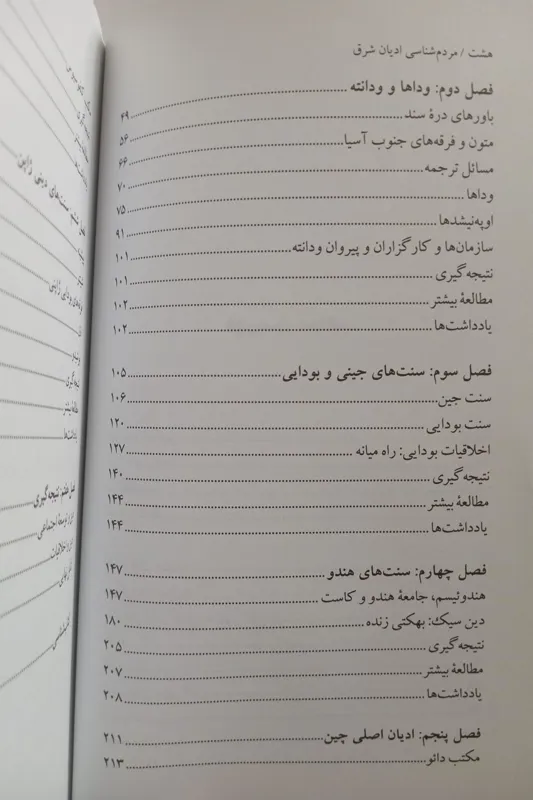 هشت / مردم‌شناسی ادیان شرق
فصل دوم: وداها و ودانته ۴۹
باورهای درهٔ سند ۵۶
متون و فرقه‌های جنوب آسیا ۶۶
مسائل ترجمه ۷۰
وداها ۷۵
اوپه‌نیشدها ۹۱
سازمان‌ها و کارگزاران و پیروان ودانته ۱۰۱
نتیجه‌گیری ۱۰۱
مطالعهٔ بیشتر ۱۰۲
یادداشت‌ها ۱۰۲
فصل سوم: سنت‌های جینی و بودایی ۱۰۵
سنت جین ۱۰۶
سنت بودایی ۱۲۰
اخلاقیات بودایی: راه میانه ۱۲۷
نتیجه‌گیری ۱۴۰
مطالعهٔ بیشتر ۱۴۴
یادداشت‌ها ۱۴۴
فصل چهارم: سنت‌های هندو ۱۴۷
هندوئیسم، جامعهٔ هندو و کاست ۱۴۷
دین سیک: بهکتی زنده ۱۸۰
نتیجه‌گیری ۲۰۵
مطالعهٔ بیشتر ۲۰۷
یادداشت‌ها ۲۰۸
فصل پنجم: ادیان اصلی چین ۲۱۱
مکتب دائو ۲۱۳
نتیجه‌گیری
مطالعهٔ بیشتر
یادداشت‌ها